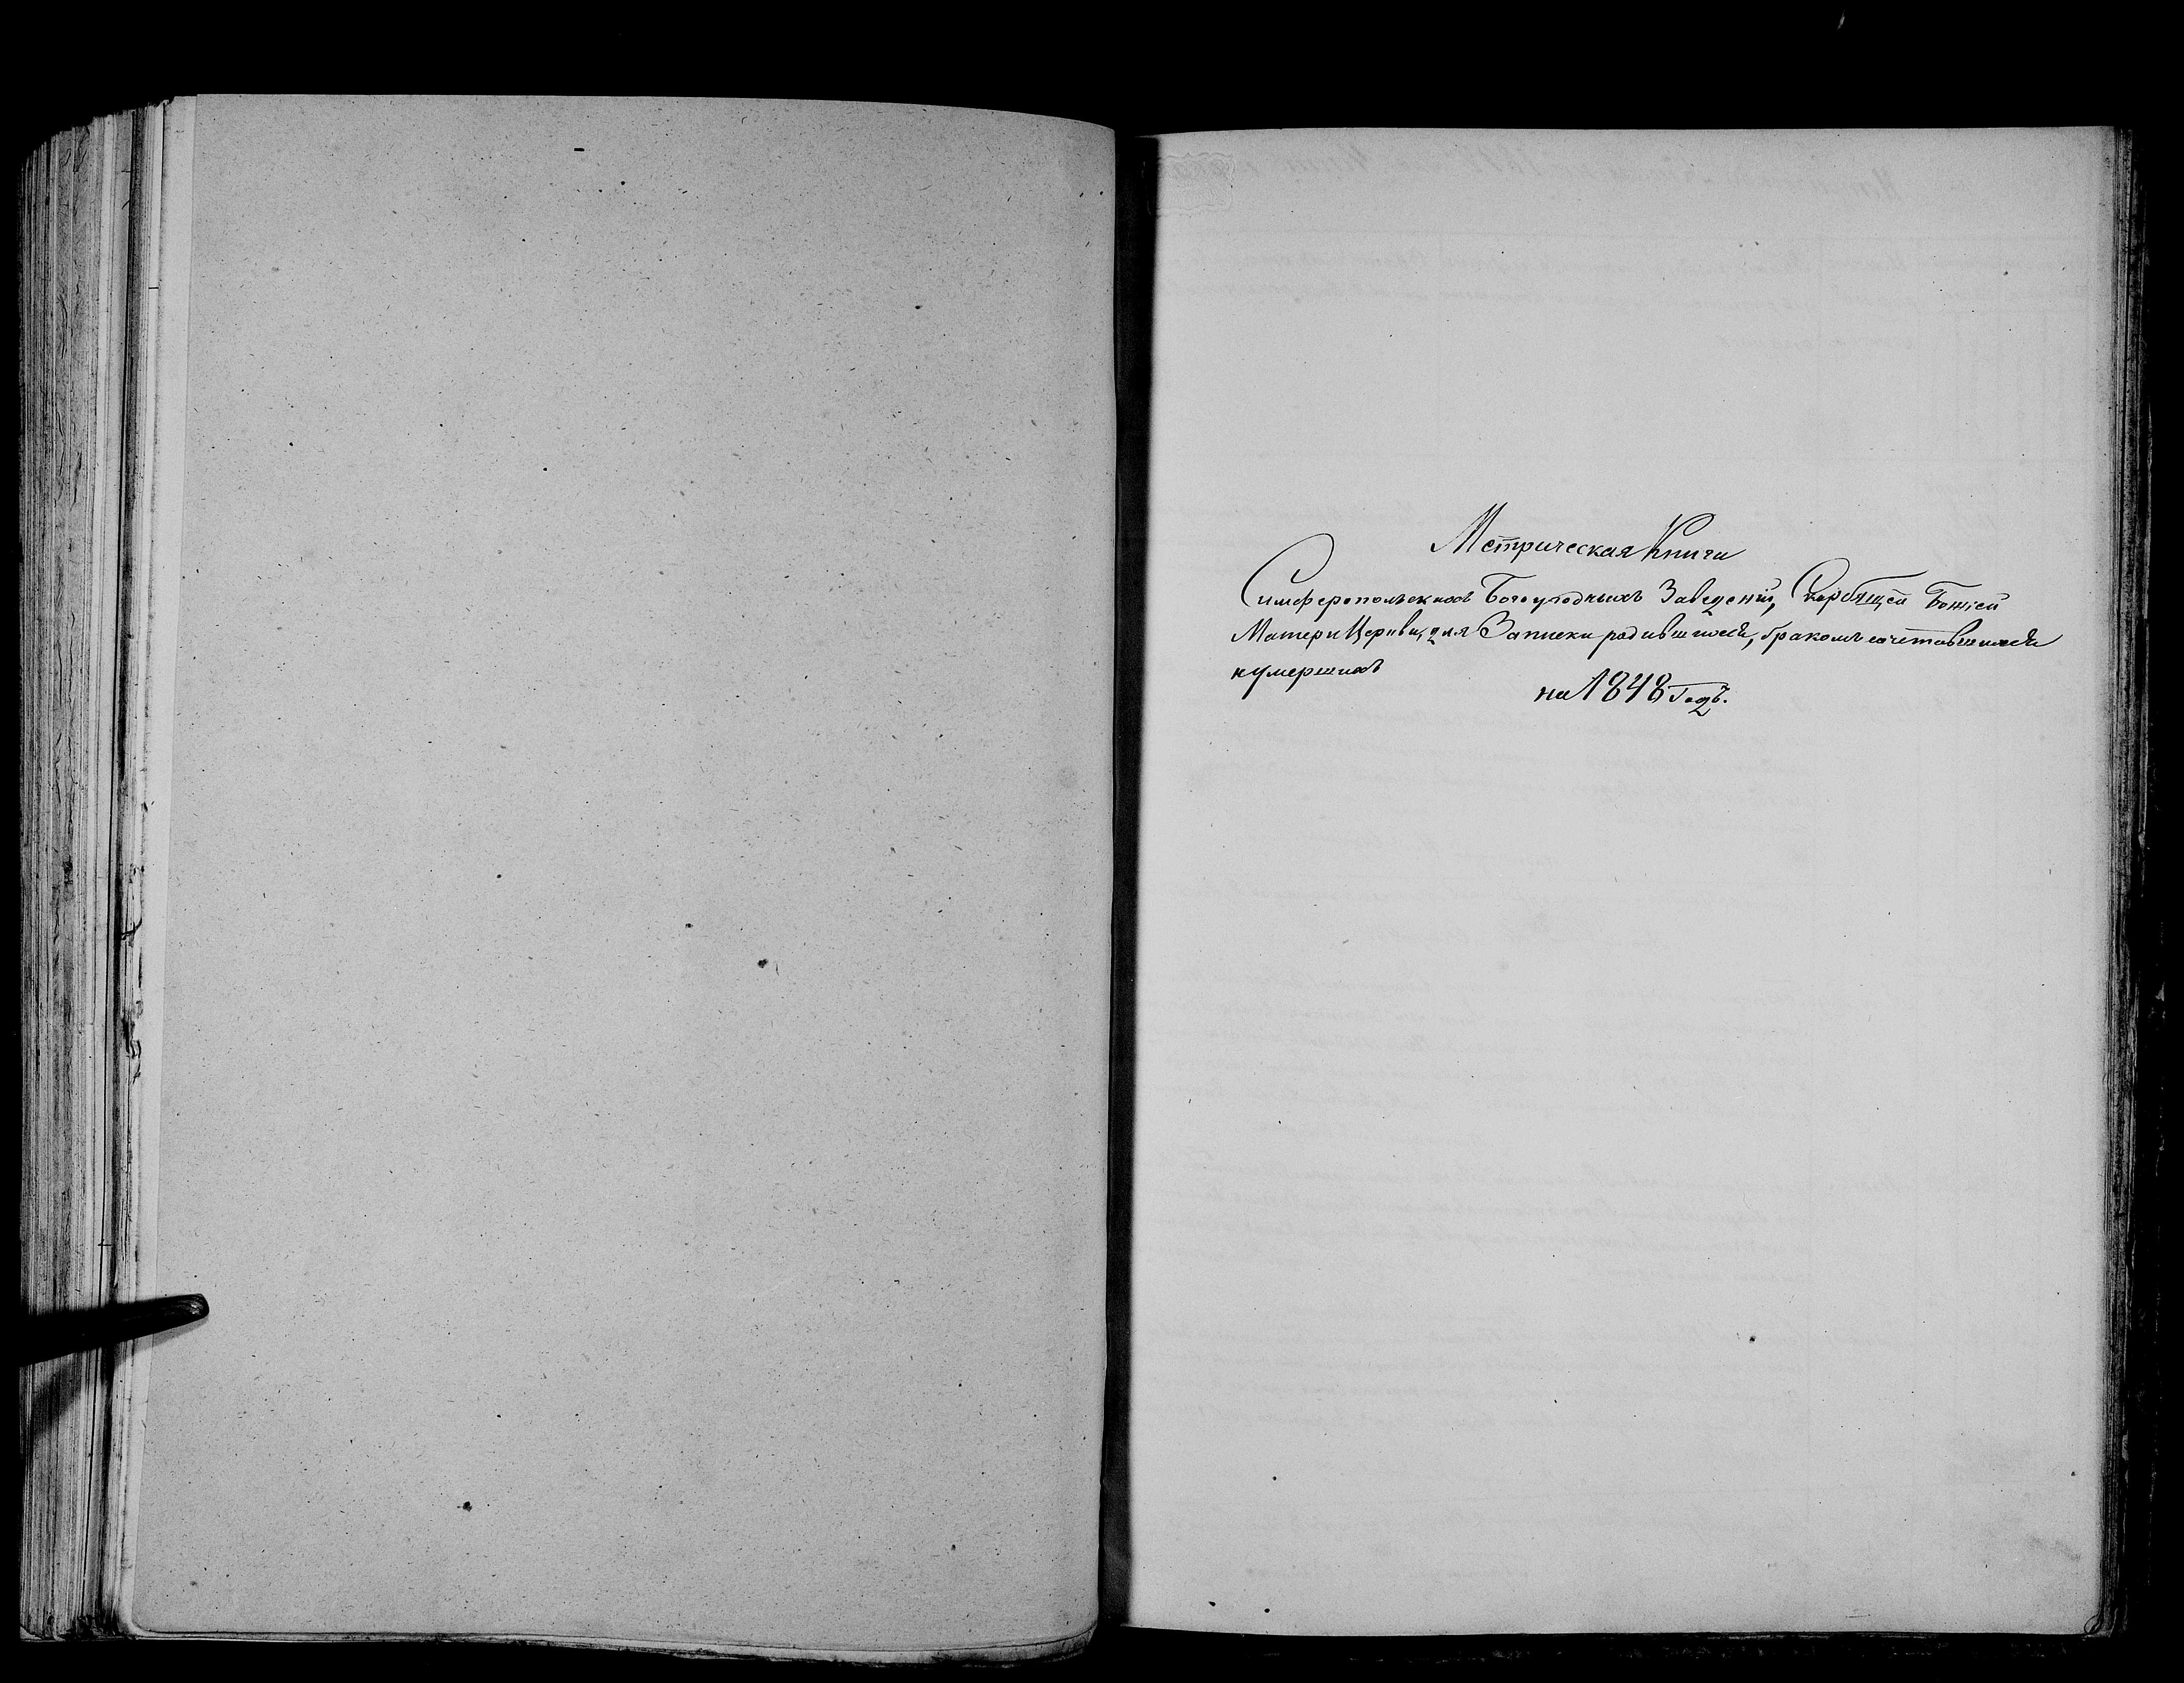 Метрическая Книга
Симферопольскихъ Богоугодныхъ Заведеній, Скорбящей Божіей
Матери Церкви, для Записки родившихся, бракомъ сочетавшихся
и умершихъ
на 1848 Годъ.